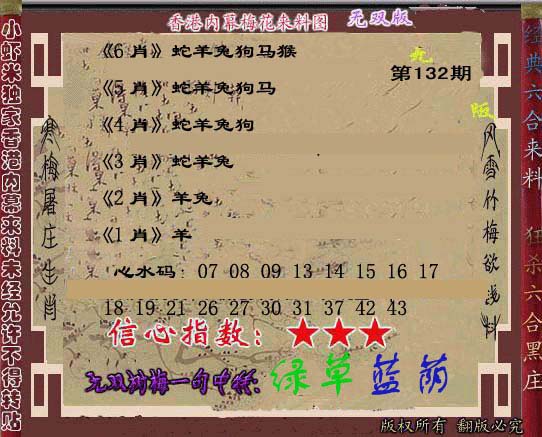 香港内幕梅花来料图 无双版
《6 肖》蛇羊兔狗马猴
第132期
《5 肖》蛇羊兔狗马
《4 肖》蛇羊兔狗
《3 肖》蛇羊兔
《2 肖》羊兔
《1 肖》羊
心水码： 07 08 09 13 14 15 16 17
18 19 21 26 27 30 31 37 42 43
信心指数：★★★
绿草蓝荫
版权所有 翻版必究
小虾米独家香港内幕来料未经允许不得转贴
寒梅屠庄生肖
风雪竹梅欲浅料
经典六合来料
狂杀六合黑庄